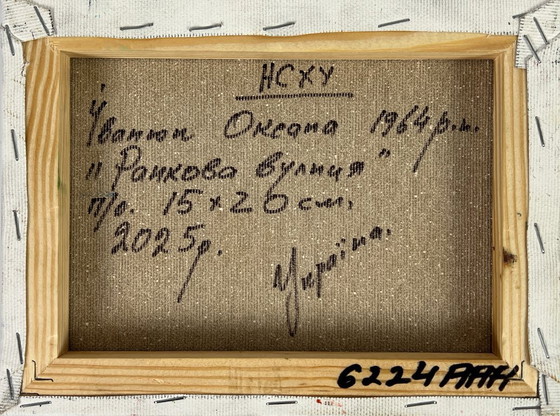 НСХУ
Іванюк Оксана 1964 р.н.
"Ранкова вулиця"
п/о. 15 x 20 см.
2025р.
Україна.
6224 AAH